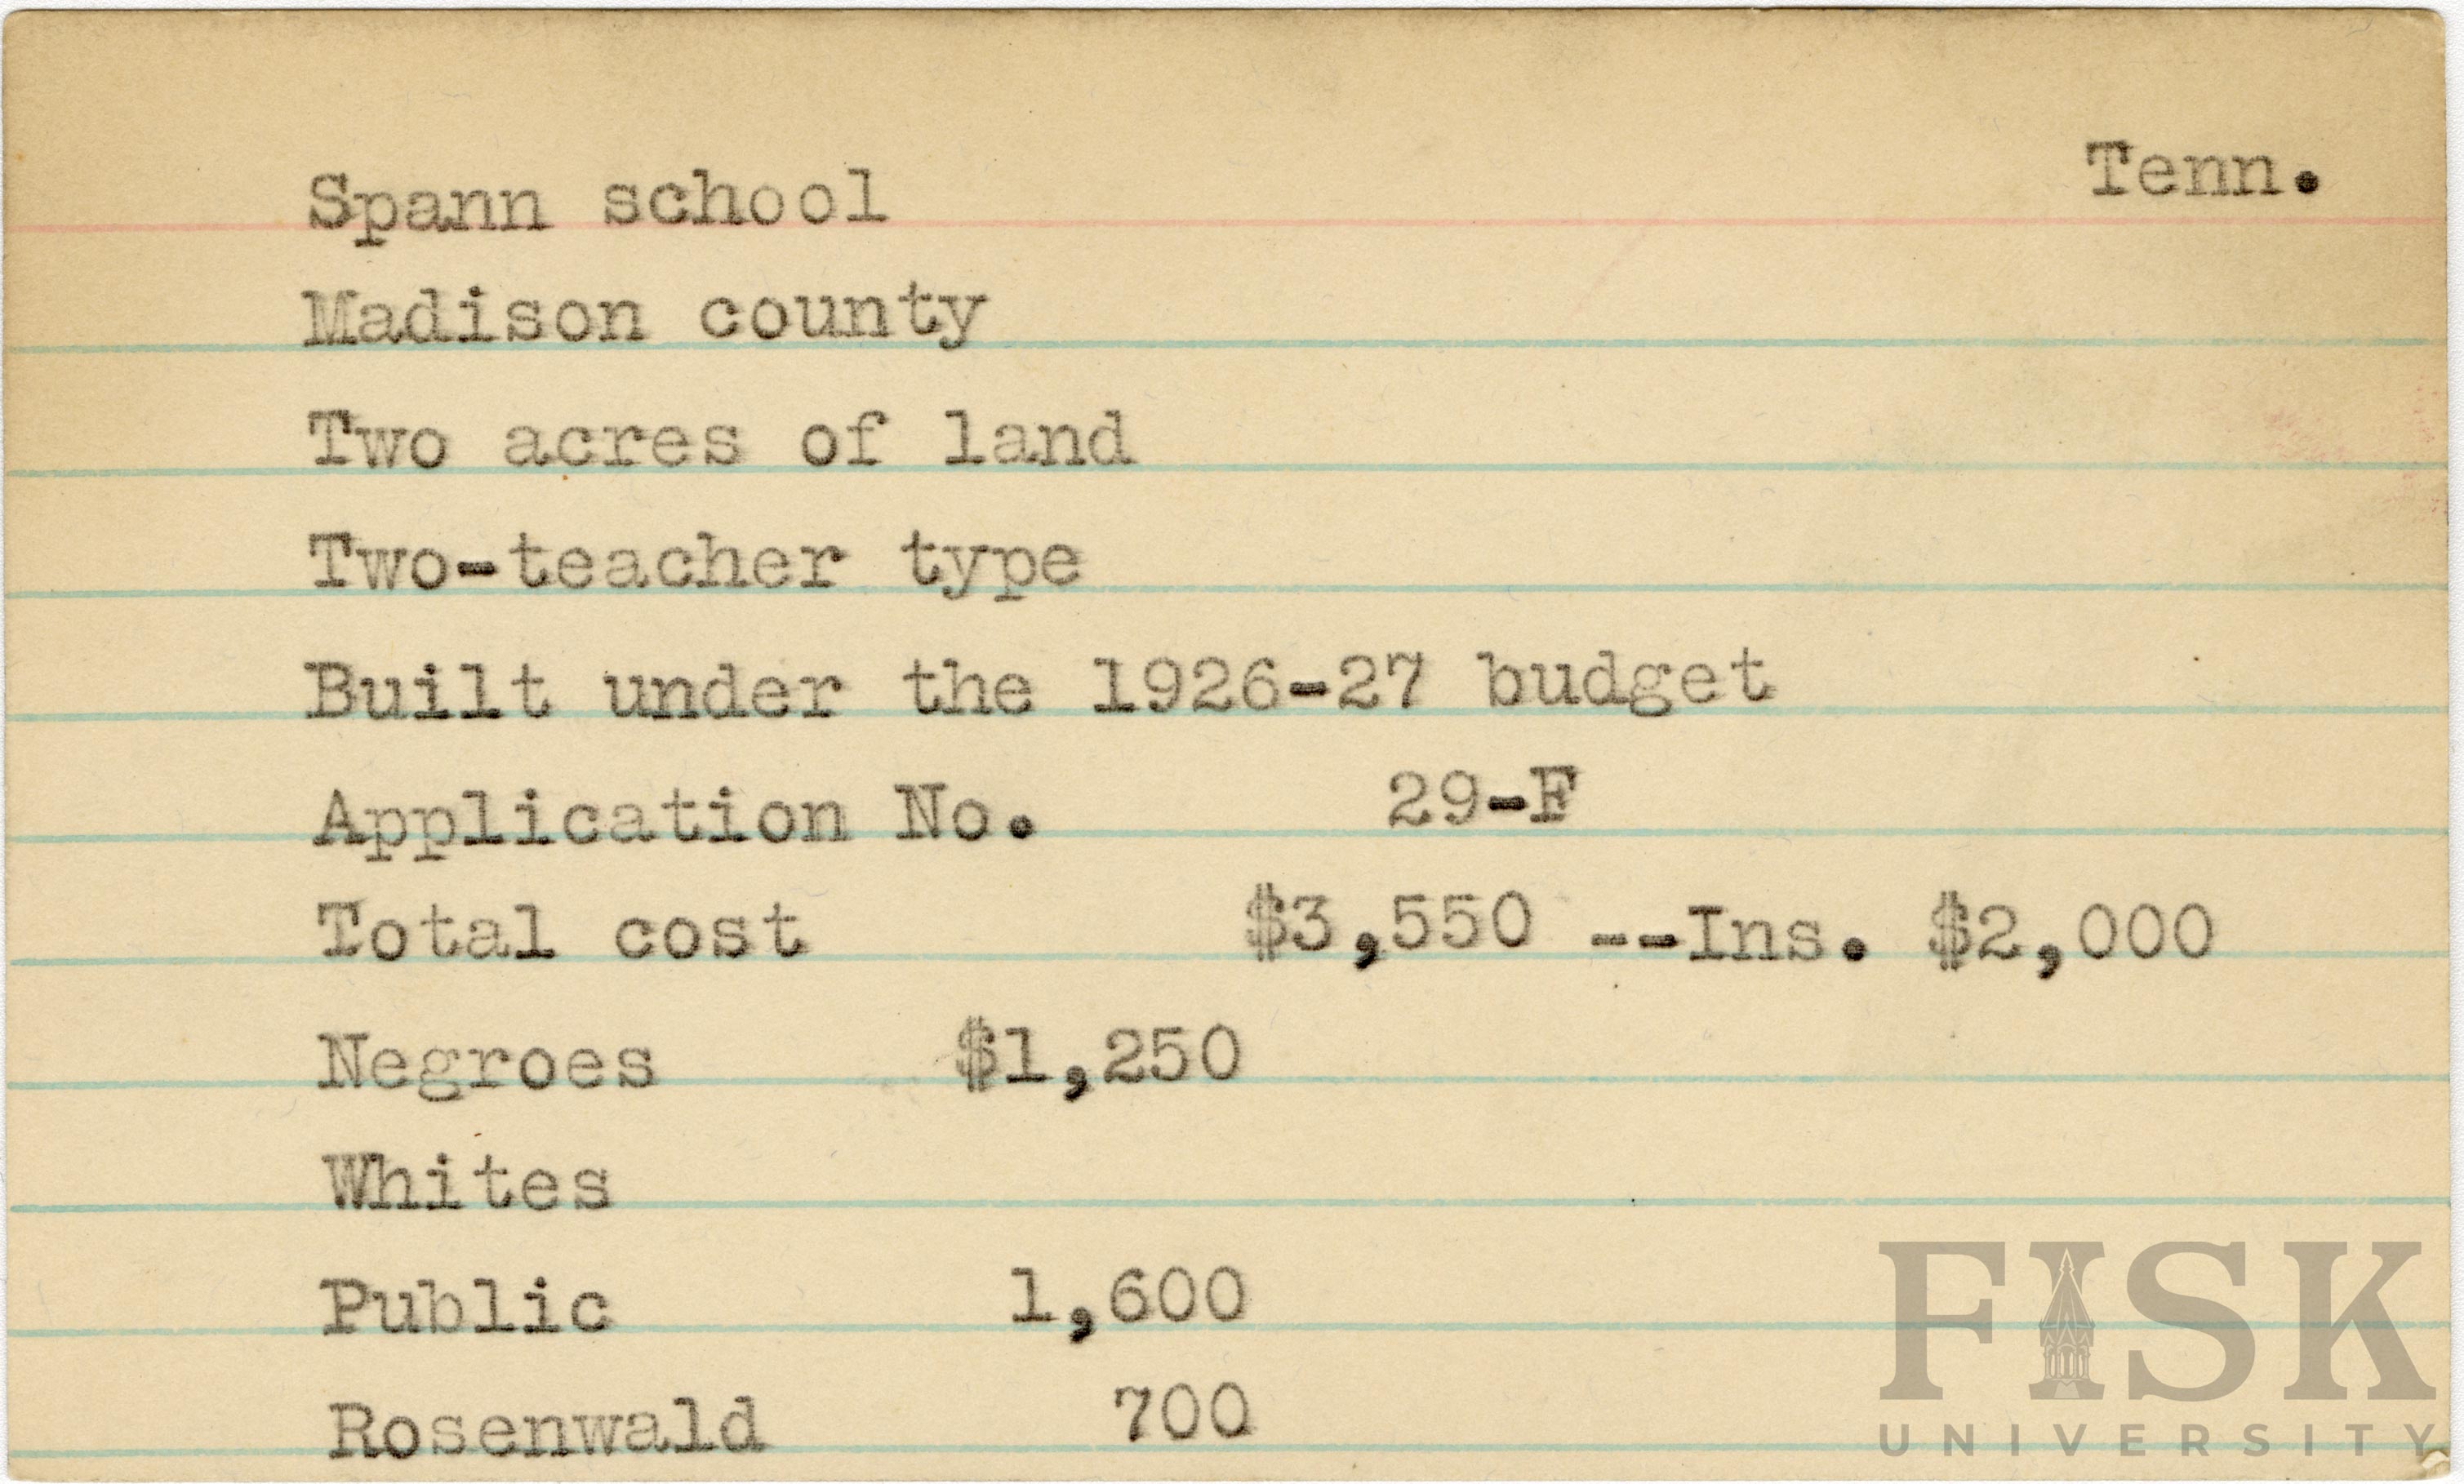 Tenn.
Spann school
Madison county
Two acres of land
Two-teacher type
Built under the 1926-27 budget
Application No. 29-F
Total cost $3,550 --Ins. $2,000
Negroes $1,250
Whites
Public 1,600
Rosenwald 700
FISK
UNIVERSITY